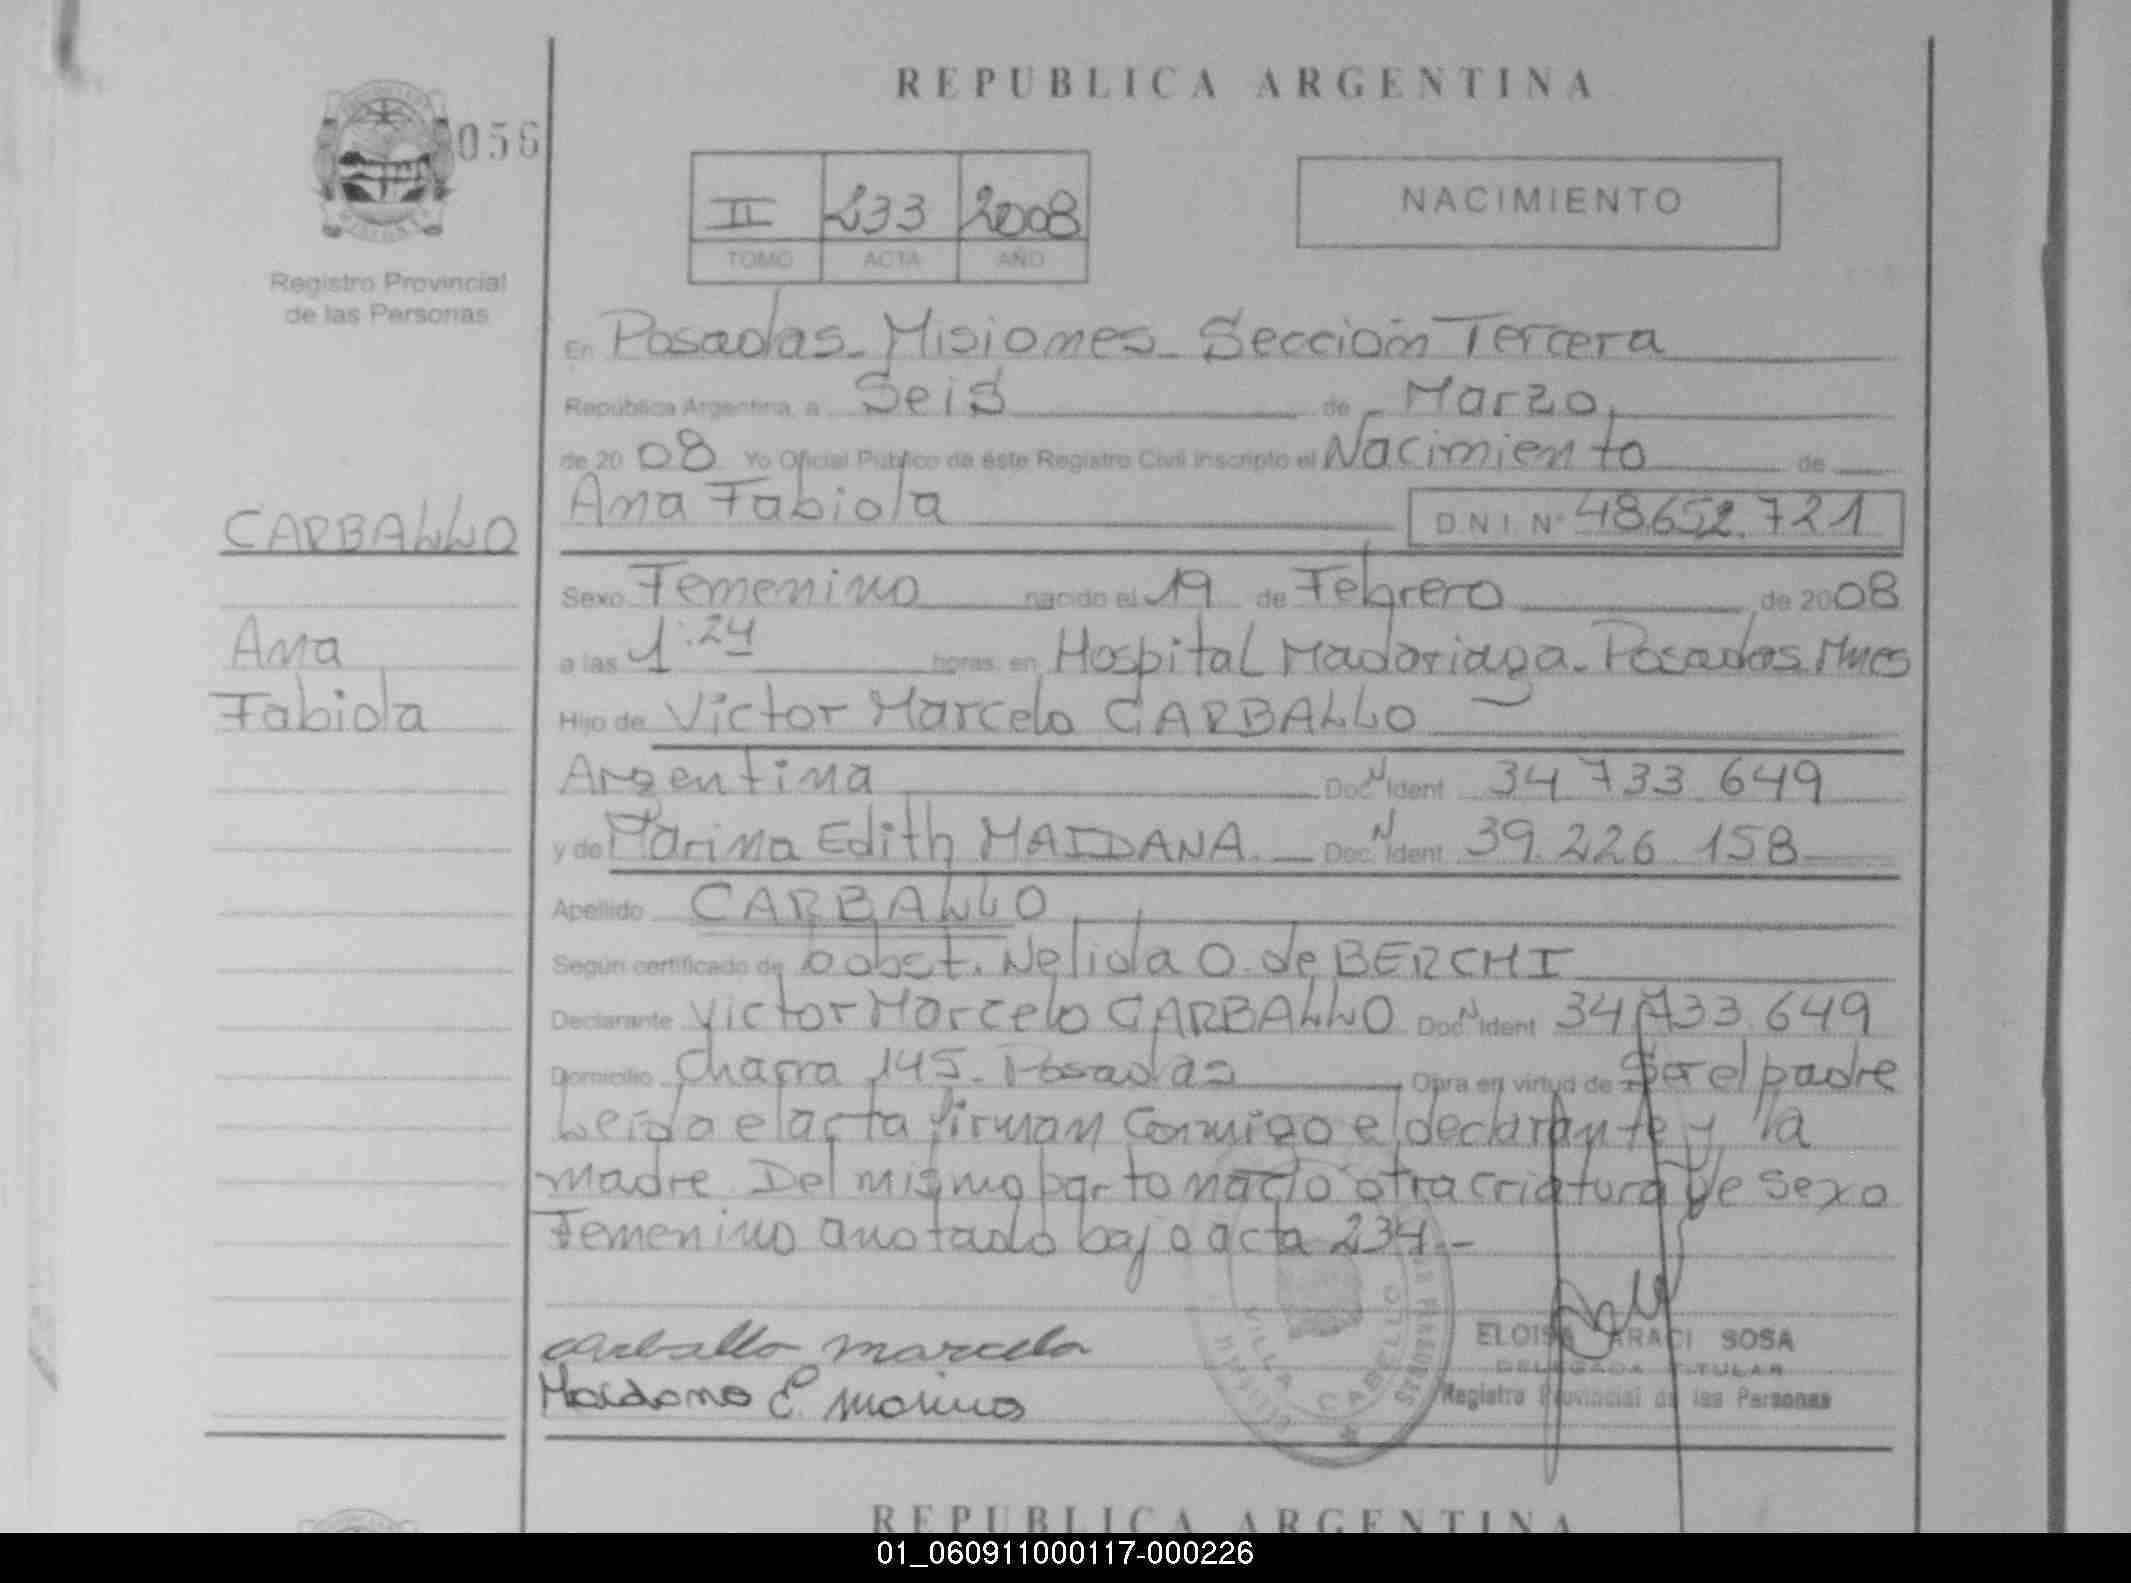 REPUBLICA ARGENTINA
056
II 233 2008
TOMO ACTA AÑO
NACIMIENTO
Registro Provincial
de las Personas
En Posadas - Misiones - Sección Tercera
República Argentina, a Seis de Marzo
de 2008 Yo Oficial Público de éste Registro Civil inscripto el Nacimiento de
Ana Fabiola D.N.I. Nº 48.652.721
CARBALLO
Ana
Fabiola
Sexo Femenino nacido el 19 de Febrero de 2008
a las 1:24 horas en Hospital Madariaga - Posadas Mnes
Hijo de Victor Marcelo CARBALLO
Argentina Doc. N Ident 34 733 649
y de Marina Edith MAIDANA. Doc. N Ident 39.226.158
Apellido CARBALLO
Según certificado de obst. Nelida O. de BERCHI
Declarante Victor Marcelo CARBALLO Doc N Ident 34 733 649
Domicilio Chacra 145 - Posadas Obra en virtud de Ser el padre
Leída el acta firman conmigo el declarante y la
madre. Del mismo parto nació otra criatura de sexo
Femenino anotado bajo acta 234.-
Carballo marcelo
Maidana E. Marina
VILLA CABELLO
ELOISA ARACI SOSA
DELEGADA TITULAR
Registro Provincial de las Personas
REPUBLICA ARGENTINA
01_060911000117-000226